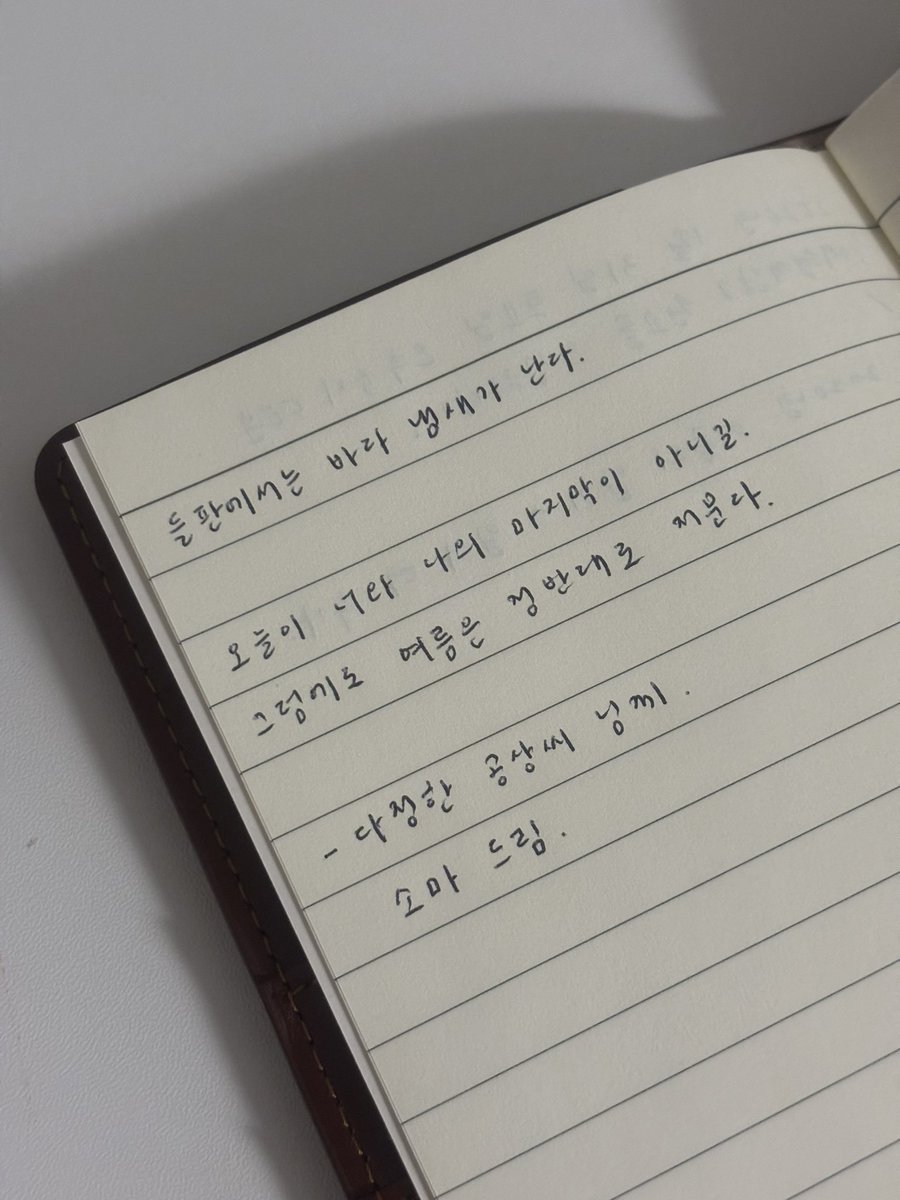 들판에서는 바다 냄새가 난다.
오늘이 너와 나의 마지막이 아니길.
그럼에도 여름은 정반대로 저문다.
- 다정한 공상씨 님께.
소마 드림.